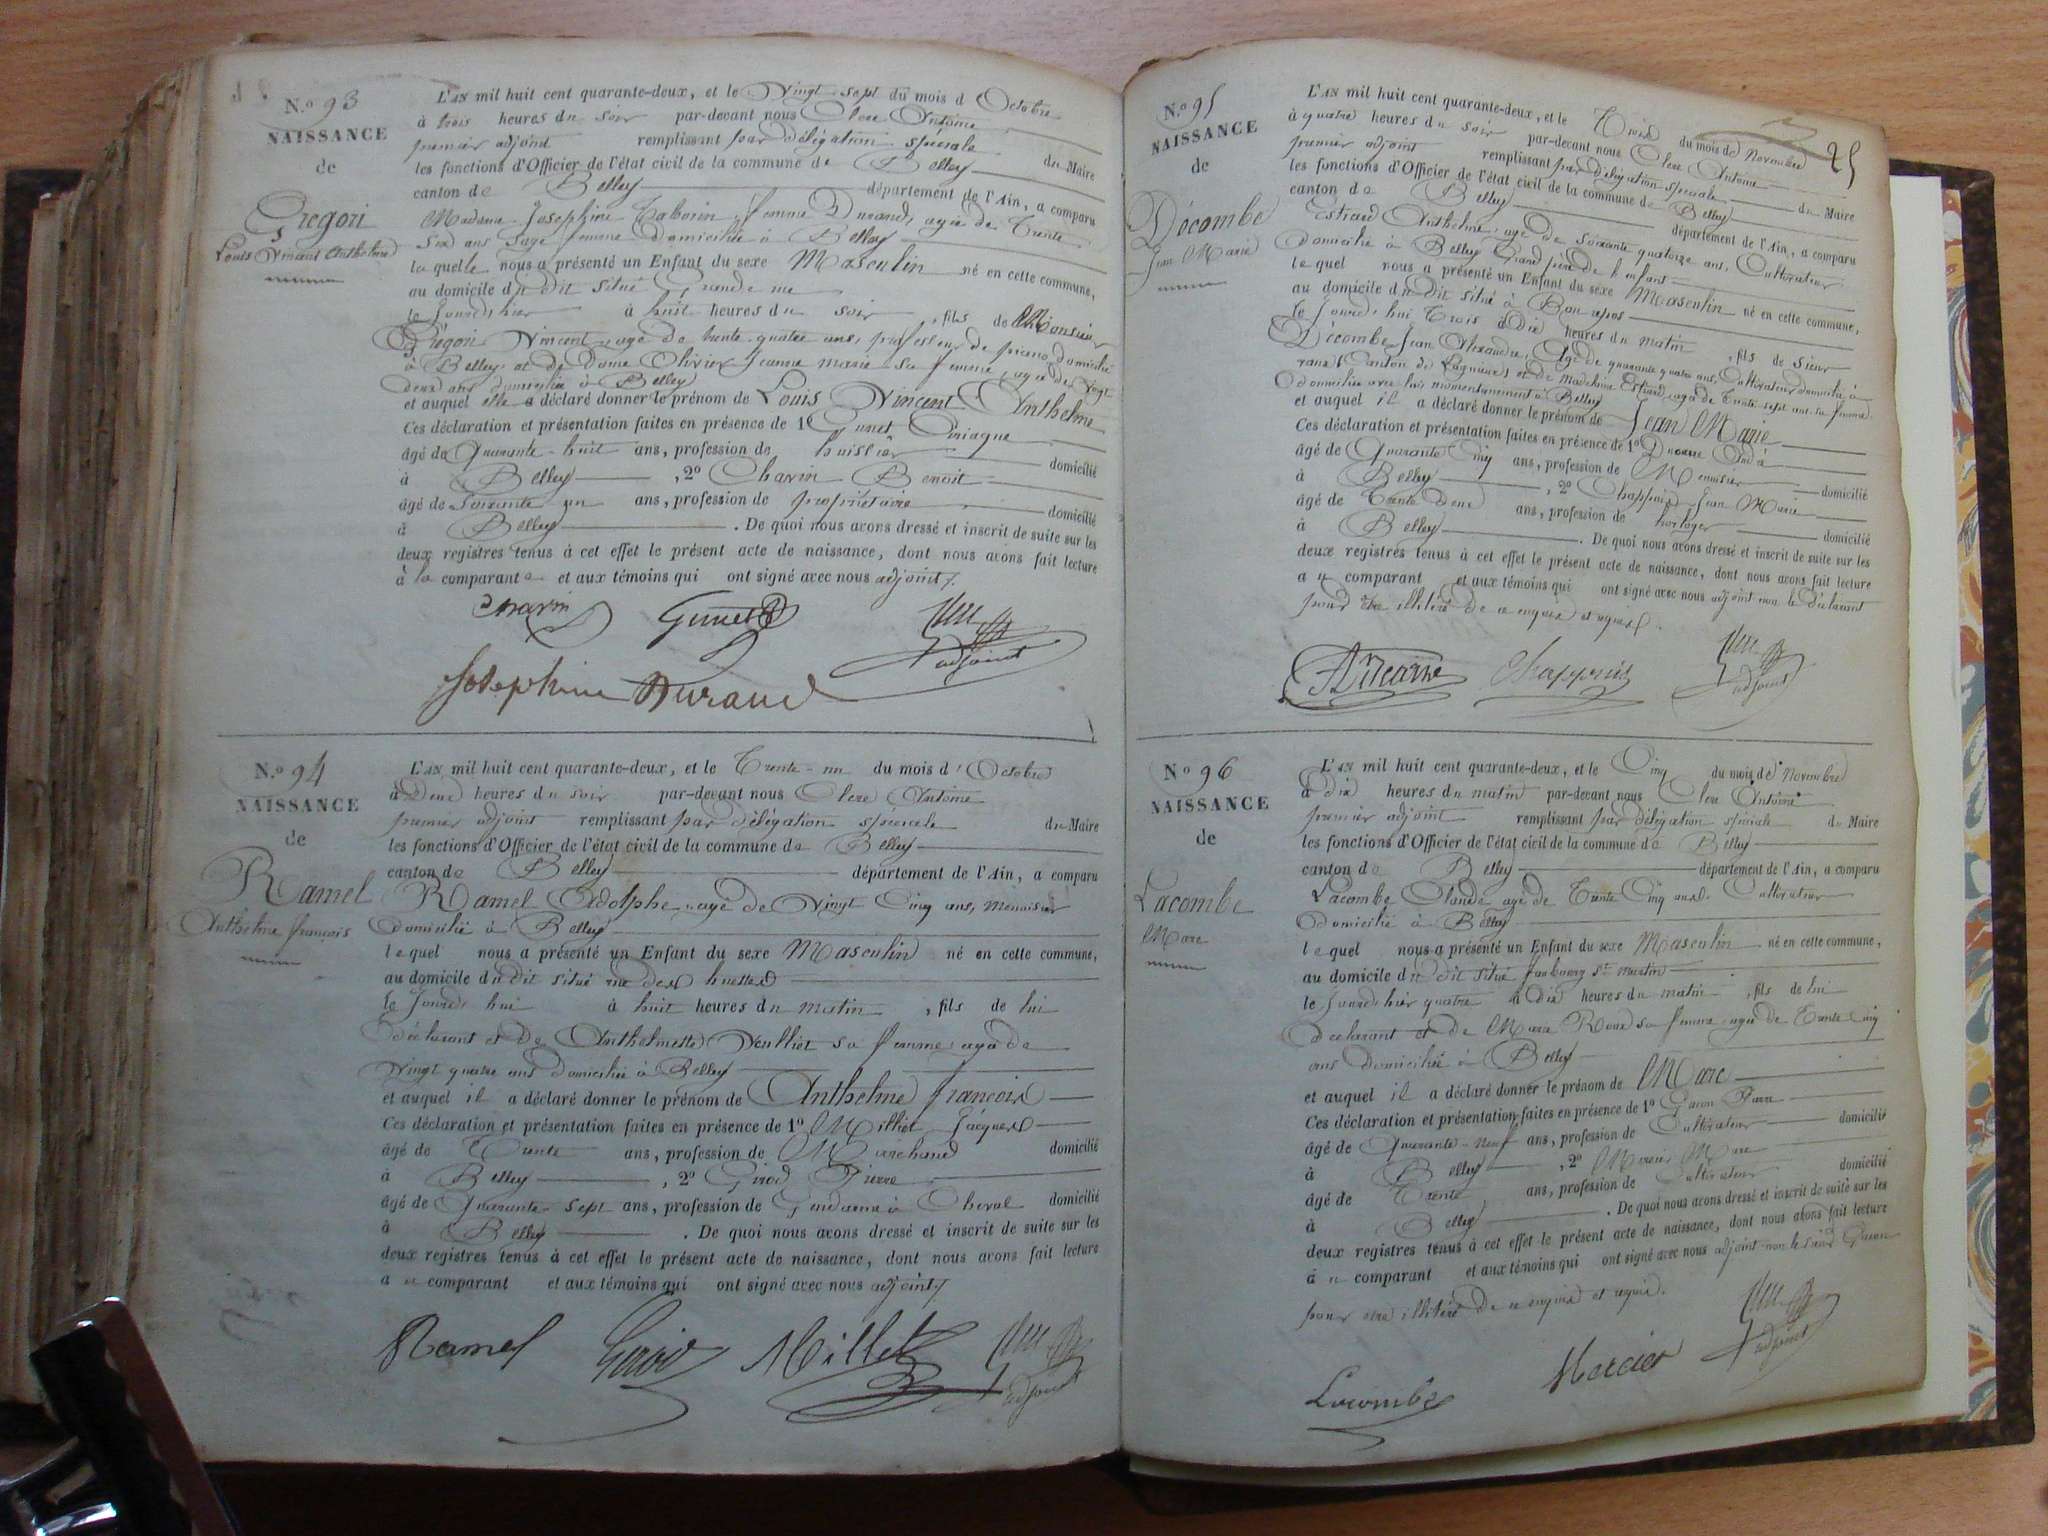 N.o 93
NAISSANCE
de
Gregori
Louis Vincent Anthelme
L'AN mil huit cent quarante-deux, et le Vingt sept du mois d Octobre
à trois heures du soir par-devant nous Clerc Antoine
premier adjoint remplissant par délégation spéciale du Maire
les fonctions d'Officier de l'état civil de la commune de Belley
canton de Belley département de l'Ain, a comparu
Madame Josephine Taborin femme Durand, agée de Trente
Six ans Sage femme domiciliée à Belley
la quelle nous a présenté un Enfant du sexe Masculin né en cette commune,
au domicile du dit situé Grande rue
le Jourd'hier à huit heures du soir, fils de Monsieur
Grégori Vincent, agé de trente quatre ans, professeur de piano, domicilié
à Belley et de Dame Olivier Jeanne marie sa femme, agée de vingt
deux ans domiciliée à Belley
et auquel elle a déclaré donner le prénom de Louis Vincent Anthelme
Ces déclaration et présentation faites en présence de 1 Gunet
âgé de Quarante-huit ans, profession de huissier domicilié
à Belley, 2o Charin Benoit
âgé de Soixante un ans, profession de propriétaire domicilié
à Belley. De quoi nous avons dressé et inscrit de suite sur les
deux registres tenus à cet effet le présent acte de naissance, dont nous avons fait lecture
à la comparante et aux témoins qui ont signé avec nous adjoint/.
Charin Gunet
adjoint
Josephine Durand
N.o 94
NAISSANCE
de
Ramel
Anthelme françois
L'AN mil huit cent quarante-deux, et le Trente-un du mois d'Octobre
à Deux heures du soir par-devant nous Clerc Antoine
premier adjoint remplissant par délégation spéciale du Maire
les fonctions d'Officier de l'état civil de la commune de Belley
canton de Belley département de l'Ain, a comparu
Ramel Adolphe, agé de Vingt Cinq ans, menuisier
domicilié à Belley
lequel nous a présenté un Enfant du sexe Masculin né en cette commune,
au domicile du dit situé rue des
le Jourd'hui à huit heures du matin, fils de lui
déclarant et de Anthelmette Veulliet sa femme agée de
vingt quatre ans domiciliée à Belley
et auquel il a déclaré donner le prénom de Anthelme françois
Ces déclaration et présentation faites en présence de 1o Milliet Jacques
âgé de Trente ans, profession de Marchand domicilié
à Belley, 2o Girod Pierre
âgé de Quarante-sept ans, profession de Gendarme à Cheval domicilié
à Belley. De quoi nous avons dressé et inscrit de suite sur les
deux registres tenus à cet effet le présent acte de naissance, dont nous avons fait lecture
à u comparant et aux témoins qui ont signé avec nous adjoint/
Ramel Girod Milliet
adjoint
25
No 95
NAISSANCE
de
Décombe
Jean Marie
L'AN mil huit cent quarante-deux, et le Trois du mois de Novembre
à quatre heures du soir par-devant nous Clerc Antoine
premier adjoint remplissant par délégation spéciale du Maire
les fonctions d'Officier de l'état civil de la commune de Belley
canton de Belley département de l'Ain, a comparu
Estraud Anthelme, agé de Soixante quatorze ans, Cultivateur
domicilié à Belley Grand père de l'enfant
lequel nous a présenté un Enfant du sexe Masculin né en cette commune,
au domicile du dit situé à Bon repos
le Jourd'hui Trois à dix heures du matin, fils de Sieur
Décombe Jean Alexandre, Agé de quarante quatre ans, Cultivateur domicilié à
Canton de Lagnieu, et de Madeleine Estraud agée de Trente sept ans sa femme
domiciliée avec lui momentanément à Belley
et auquel il a déclaré donner le prénom de Jean Marie
Ces déclaration et présentation faites en présence de 1o André
âgé de Quarante Cinq ans, profession de Menuisier domicilié
à Belley, 2o Chappuis Jean Marie
âgé de Trente Deux ans, profession de horloger domicilié
à Belley. De quoi nous avons dressé et inscrit de suite sur les
deux registres tenus à cet effet le présent acte de naissance, dont nous avons fait lecture
a u comparant et aux témoins qui ont signé avec nous adjoint non le déclarant
pour être illitéré de ce enquis et requis.
Chappuis
adjoint
No 96
NAISSANCE
de
Lacombe
Marc
L'AN mil huit cent quarante-deux, et le Cinq du mois de Novembre
à dix heures du matin par-devant nous Clerc Antoine
premier adjoint remplissant par délégation spéciale du Maire
les fonctions d'Officier de l'état civil de la commune de Belley
canton de Belley département de l'Ain, a comparu
Lacombe Claude agé de Trente Cinq ans. Cultivateur
domicilié à Belley
lequel nous a présenté un Enfant du sexe Masculin né en cette commune,
au domicile du dit situé faubourg St. martin
le Jourd'hier quatre à dix heures du matin, fils de lui
déclarant et de Marie Roux sa femme agée de Trente Cinq
ans domiciliée à Belley
et auquel il a déclaré donner le prénom de Marc
Ces déclaration et présentation faites en présence de 1o
âgé de Quarante-neuf ans, profession de Cultivateur domicilié
à Belley, 2o Mercier Marc
âgé de Trente ans, profession de Cultivateur domicilié
à Belley. De quoi nous avons dressé et inscrit de suite sur les
deux registres tenus à cet effet le présent acte de naissance, dont nous avons fait lecture
à u comparant et aux témoins qui ont signé avec nous adjoint non le sieur
pour être illitéré de ce enquis et requis.
adjoint
Lacombe Mercier